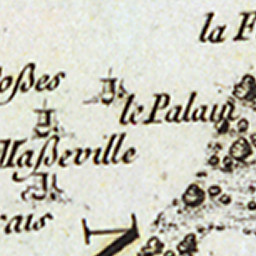 la F
oßes
le Palais
Maßeville
rais
N